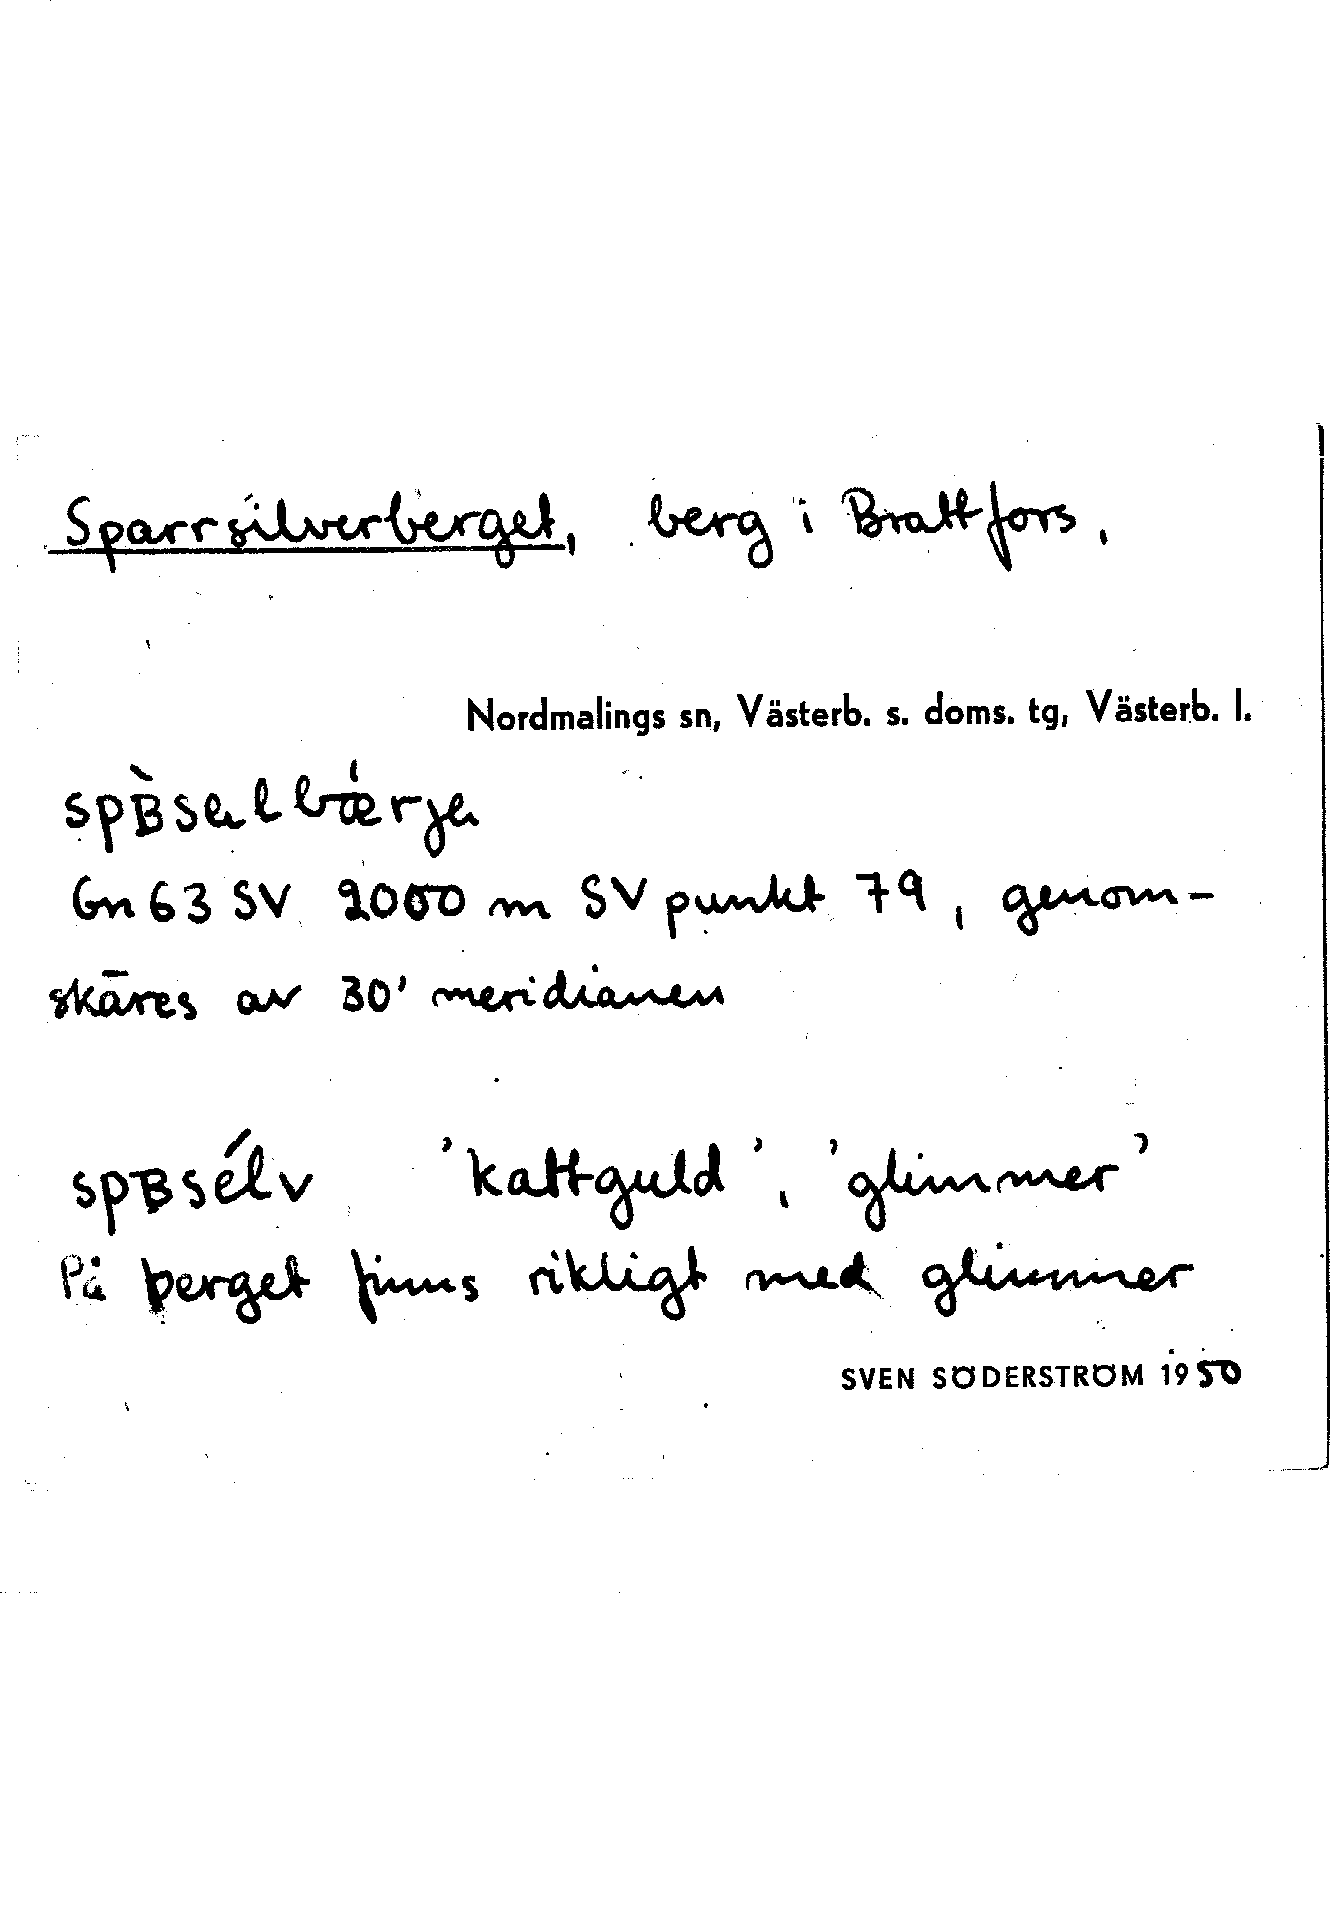 Sparrsilverberget, berg i Brattfors,
Nordmalings sn, Västerb. s. doms. tg, Västerb. l.
Gn 63 SV 2000 m SV punkt 79, genom-
skäres av 30' meridianen
'kattguld', 'glimmer'
På berget finns rikligt med glimmer
SVEN SÖDERSTRÖM 1950